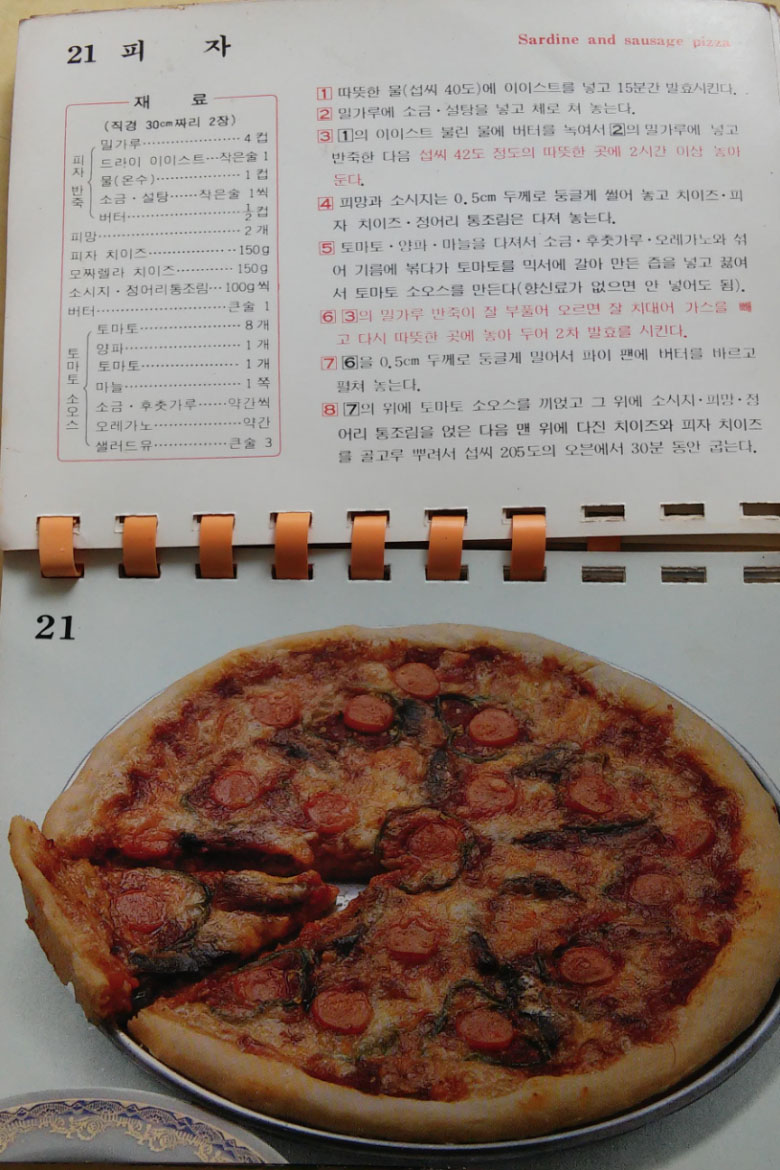 21 피 자
Sardine and sausage pizza
재 료
(직경 30cm짜리 2장)
피자 반죽
밀가루 4 컵
드라이 이이스트 작은술 1
물(온수) 1 컵
소금·설탕 작은술 1씩
버터 1/2 컵
피망 2 개
피자 치이즈 150g
모짜렐라 치이즈 150g
소시지·정어리통조림 100g씩
버터 큰술 1
토마토 소오스
토마토 8 개
양파 1 개
토마토 1 개
마늘 1 쪽
소금·후춧가루 약간씩
오레가노 약간
샐러드유 큰술 3
1 따뜻한 물(섭씨 40도)에 이이스트를 넣고 15분간 발효시킨다.
2 밀가루에 소금·설탕을 넣고 체로 쳐 놓는다.
3 1의 이이스트 불린 물에 버터를 녹여서 2의 밀가루에 넣고
반죽한 다음 섭씨 42도 정도의 따뜻한 곳에 2시간 이상 놓아
둔다.
4 피망과 소시지는 0.5cm 두께로 둥글게 썰어 놓고 치이즈·피
자 치이즈·정어리 통조림은 다져 놓는다.
5 토마토·양파·마늘을 다져서 소금·후춧가루·오레가노와 섞
어 기름에 볶다가 토마토를 믹서에 갈아 만든 즙을 넣고 끓여
서 토마토 소오스를 만든다(향신료가 없으면 안 넣어도 됨).
6 3의 밀가루 반죽이 잘 부풀어 오르면 잘 치대어 가스를 빼
고 다시 따뜻한 곳에 놓아 두어 2차 발효를 시킨다.
7 6을 0.5cm 두께로 둥글게 밀어서 파이 팬에 버터를 바르고
펼쳐 놓는다.
8 7의 위에 토마토 소오스를 끼얹고 그 위에 소시지·피망·정
어리 통조림을 얹은 다음 맨 위에 다진 치이즈와 피자 치이즈
를 골고루 뿌려서 섭씨 205도의 오븐에서 30분 동안 굽는다.
21